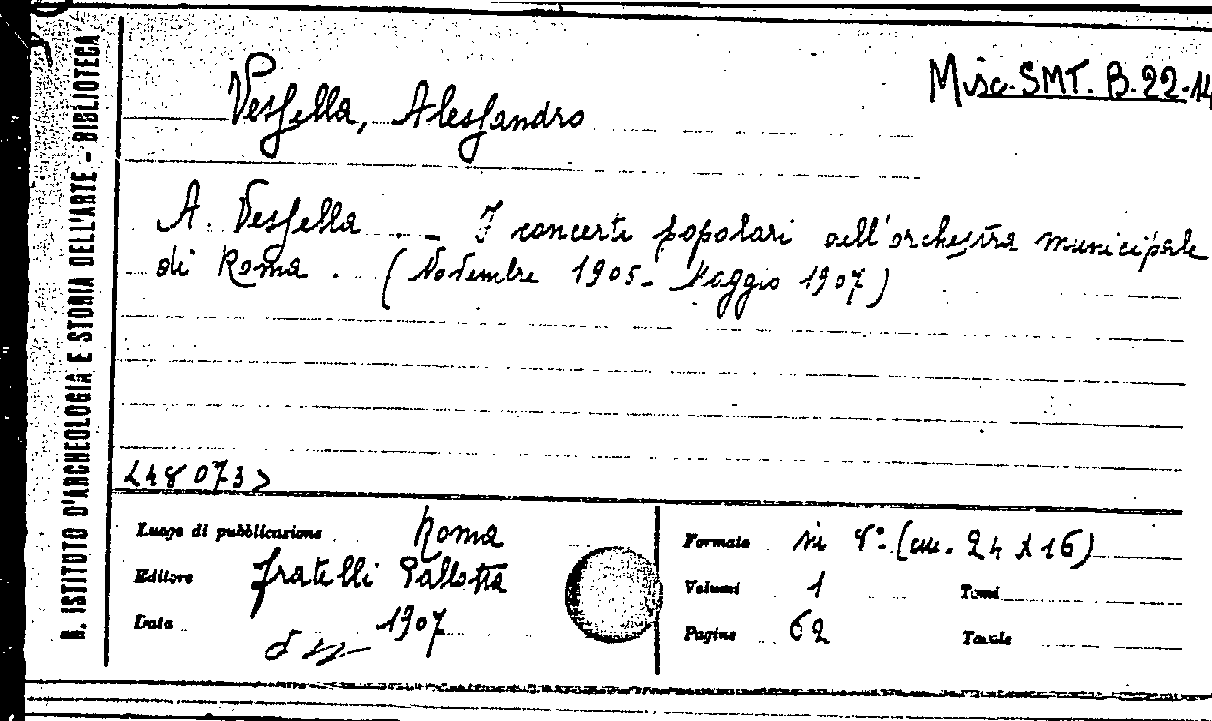 R. ISTITUTO D'ARCHEOLOGIA E STORIA DELL'ARTE - BIBLIOTECA
Misc. SMT. B. 22.14
Vessella, Alessandro
A. Vessella - I concerti popolari dell'orchestra municipale
di Roma. (Novembre 1905 - Maggio 1907)
<48073>
Luogo di pubblicazione Roma
Editore Fratelli Pallotta
Data 1907
Formato in 8° (cm. 24 x 16)
Volumi 1 Tomi
Pagine 62 Tavole